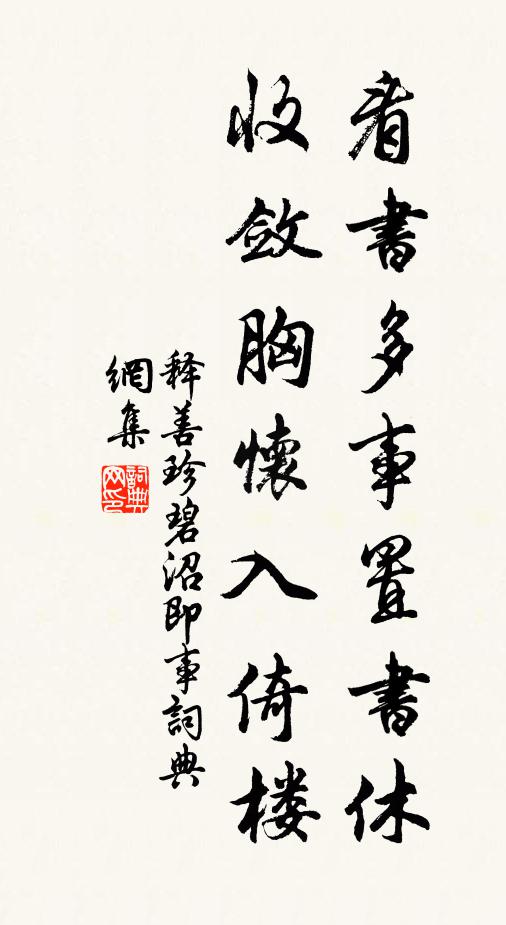 看書多事置書休
收斂胸懷入倚楼
释善珍碧沼即事詞典
網集
詞典網印